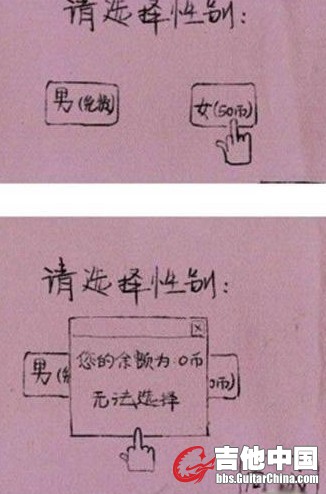 请选择性别:
男(免费)
女(50币)
请选择性别:
您的余额为:0币
男(免
0币)
无法选择
吉他中国
bbs.GuitarChina.com